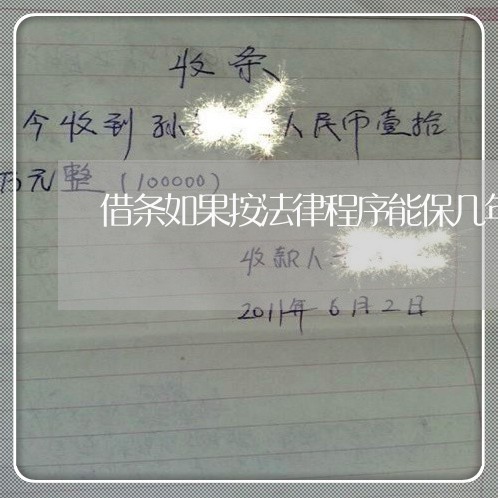 收条
今收到孙 人民币壹拾
万元整（100000）
借条如果按法律程序能保几年
收款人
2011年6月2日